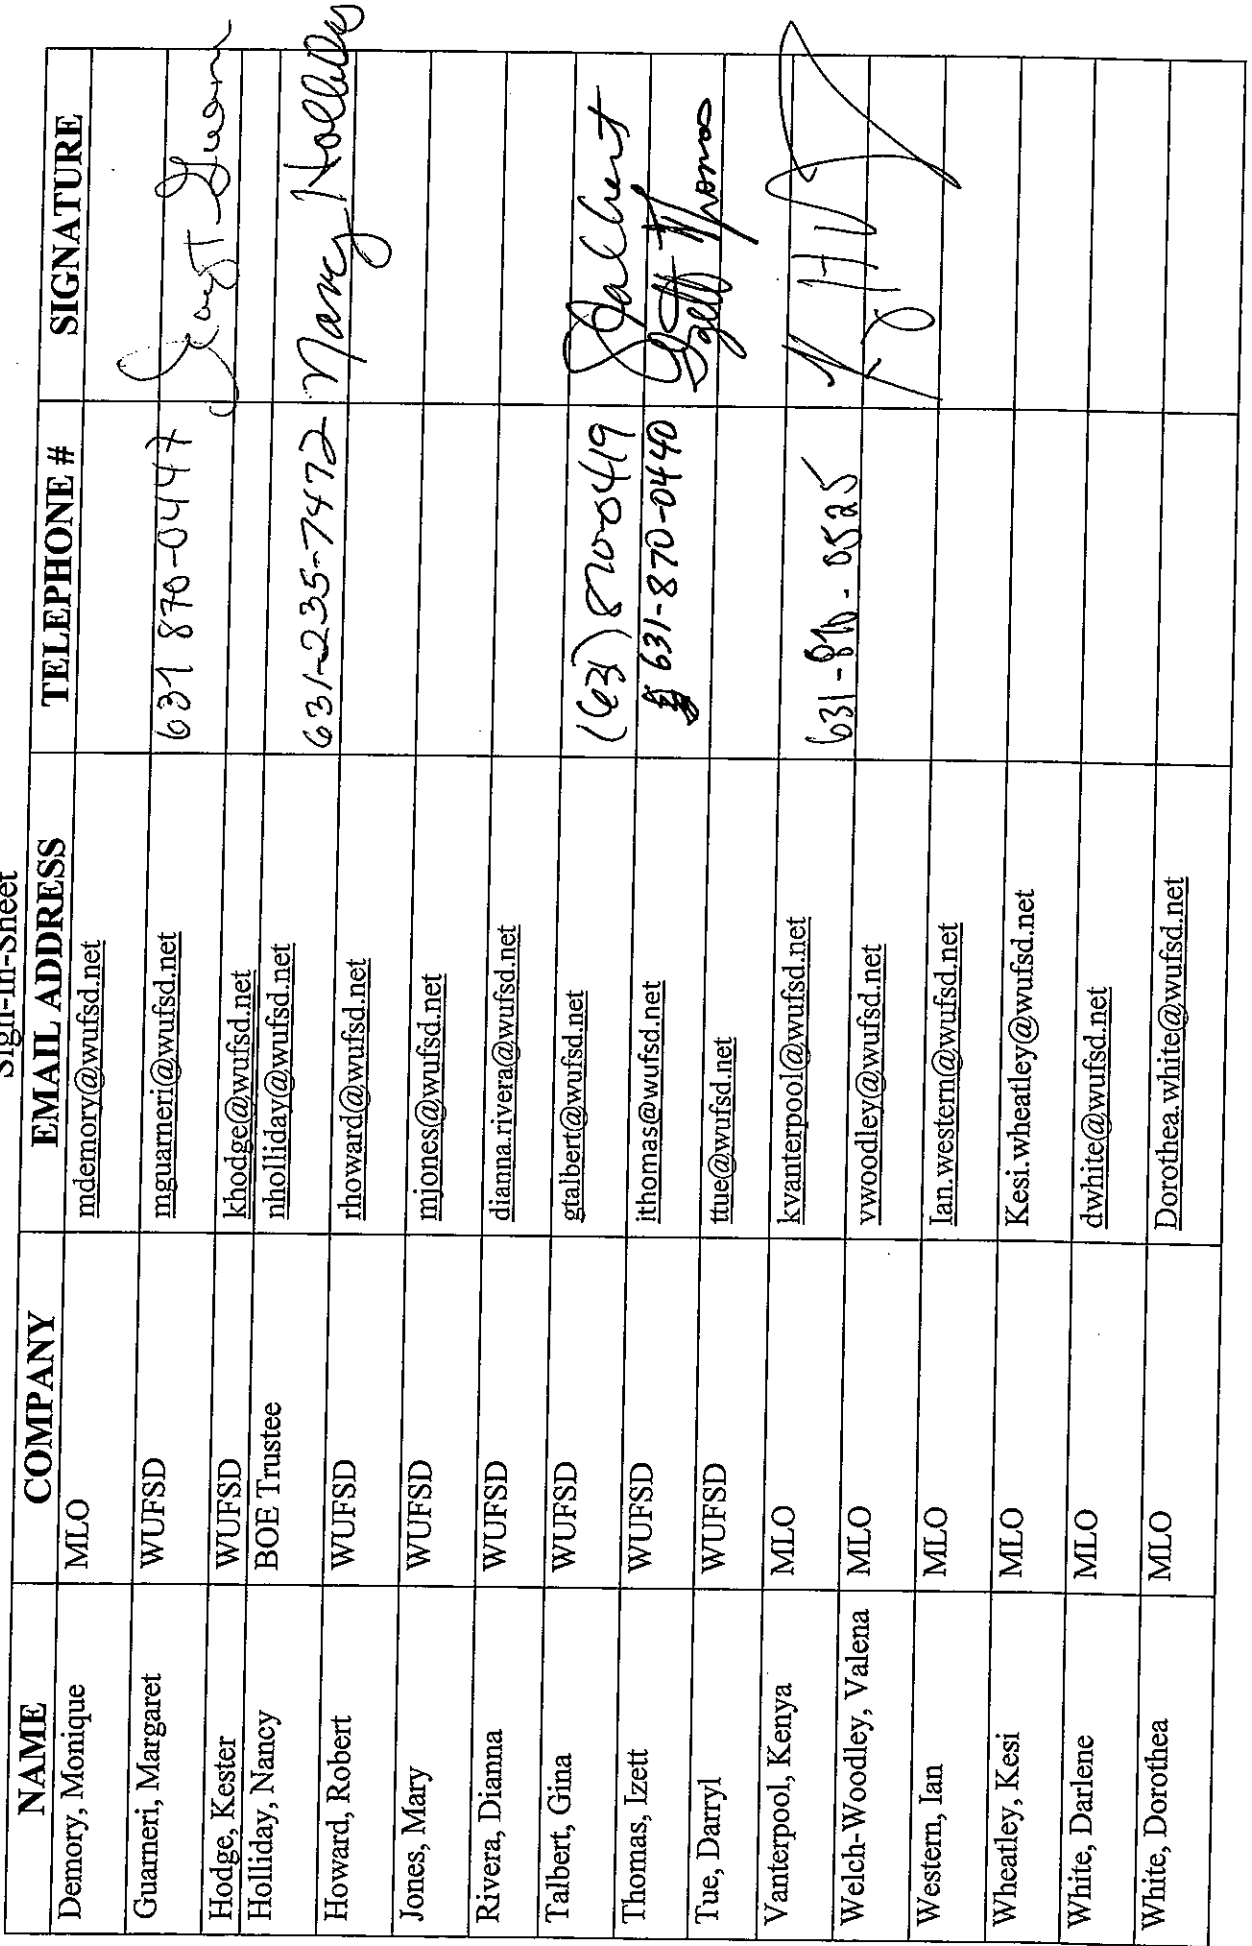 Sign-In-Sheet
NAME COMPANY EMAIL ADDRESS TELEPHONE # SIGNATURE
Demory, Monique MLO mdemory@wufsd.net
Guarneri, Margaret WUFSD mguarneri@wufsd.net 631 870-0447
Hodge, Kester WUFSD khodge@wufsd.net
Holliday, Nancy BOE Trustee nholliday@wufsd.net 631-235-7472 Nancy Holliday
Howard, Robert WUFSD rhoward@wufsd.net
Jones, Mary WUFSD mjones@wufsd.net
Rivera, Dianna WUFSD dianna.rivera@wufsd.net
Talbert, Gina WUFSD gtalbert@wufsd.net (631) 870-0419 GTalbert
Thomas, Izett WUFSD ithomas@wufsd.net 631-870-0440 Izett Thomas
Tue, Darryl WUFSD ttue@wufsd.net
Vanterpool, Kenya MLO kvanterpool@wufsd.net 631-870-0525
Welch-Woodley, Valena MLO vwoodley@wufsd.net
Western, Ian MLO Ian.western@wufsd.net
Wheatley, Kesi MLO Kesi.wheatley@wufsd.net
White, Darlene MLO dwhite@wufsd.net
White, Dorothea MLO Dorothea.white@wufsd.net